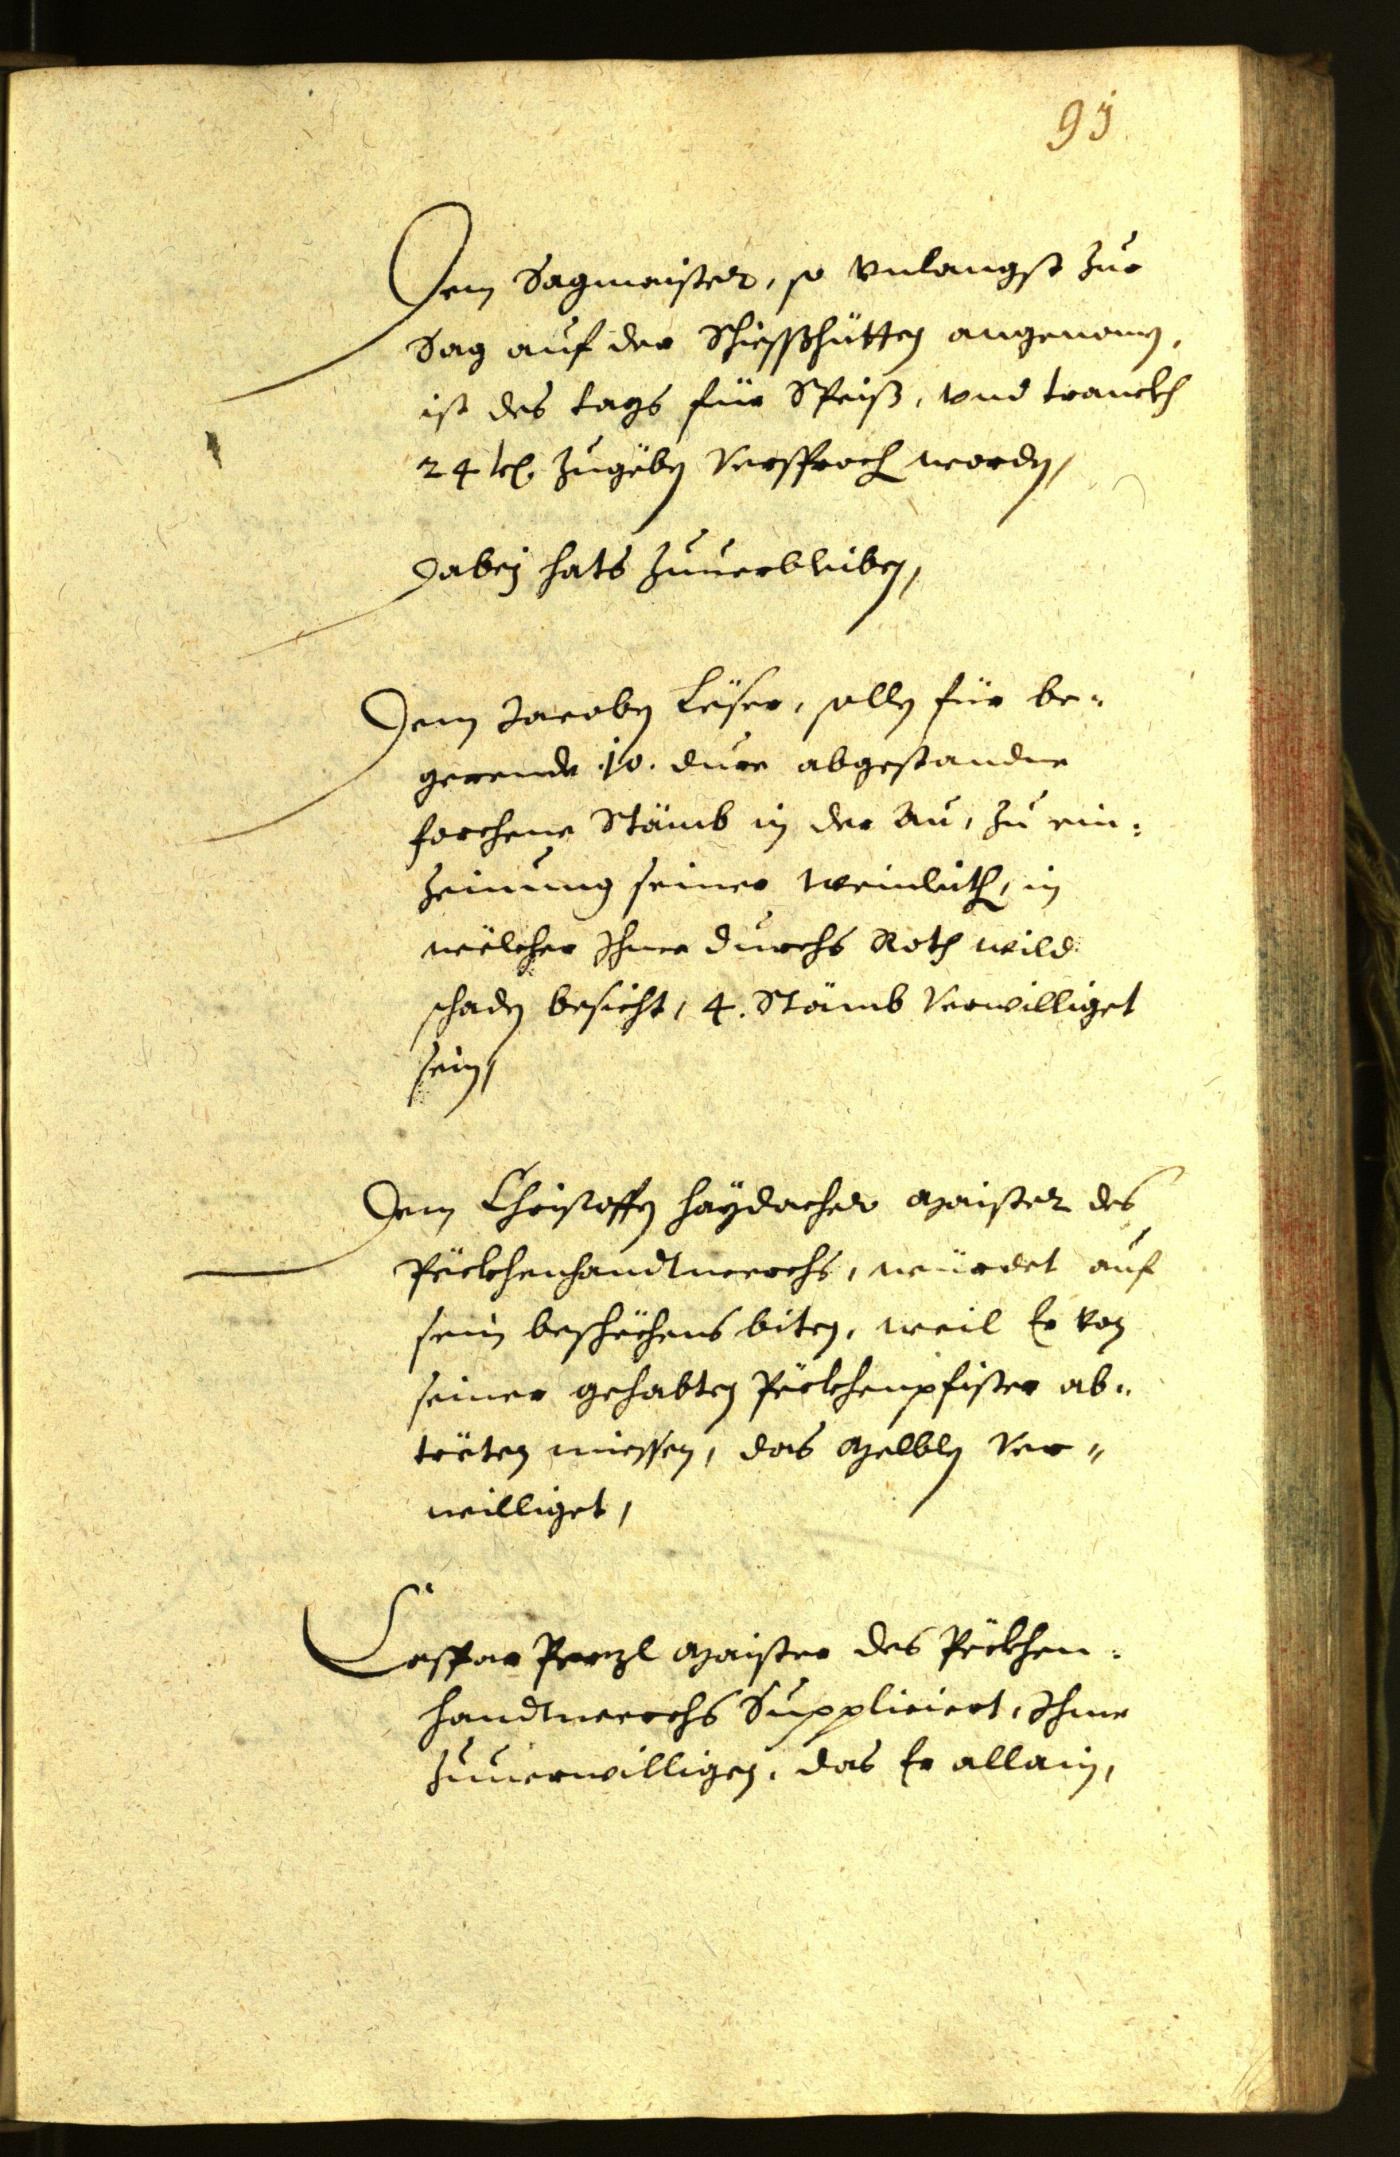 95
Dem Sagmaister, so vnlangst zur
Sag auf der Schießhütten angenomen,
ist des tags für Speiß, vnd tranckh
24 kr. zugeben versproch worden,
Dabej hats zuuerbleiben,
Dem Jacoben Leser, sollen für be-
gerende 10. dure abgestandne
forchene Stämb in der Au, zu ein-
zeinung seiner Weinleith, in
welcher Ihme durchs Roth wild
schaden besicht, 4. Stämb verwilliget
sein,
Dem Christoffen Haydacher Maister des
Peckhenhandtwerchs, würdet auf
sein beschechens biten, weil Er von
seiner gehabten Peckhenpfister ab-
treten miessen, das Melblen ver-
williget,
Caspar Penzl Maister des Peckhen-
handtwerchs Suppliciert, Ihme
zuuerwilligen, das Er allain,